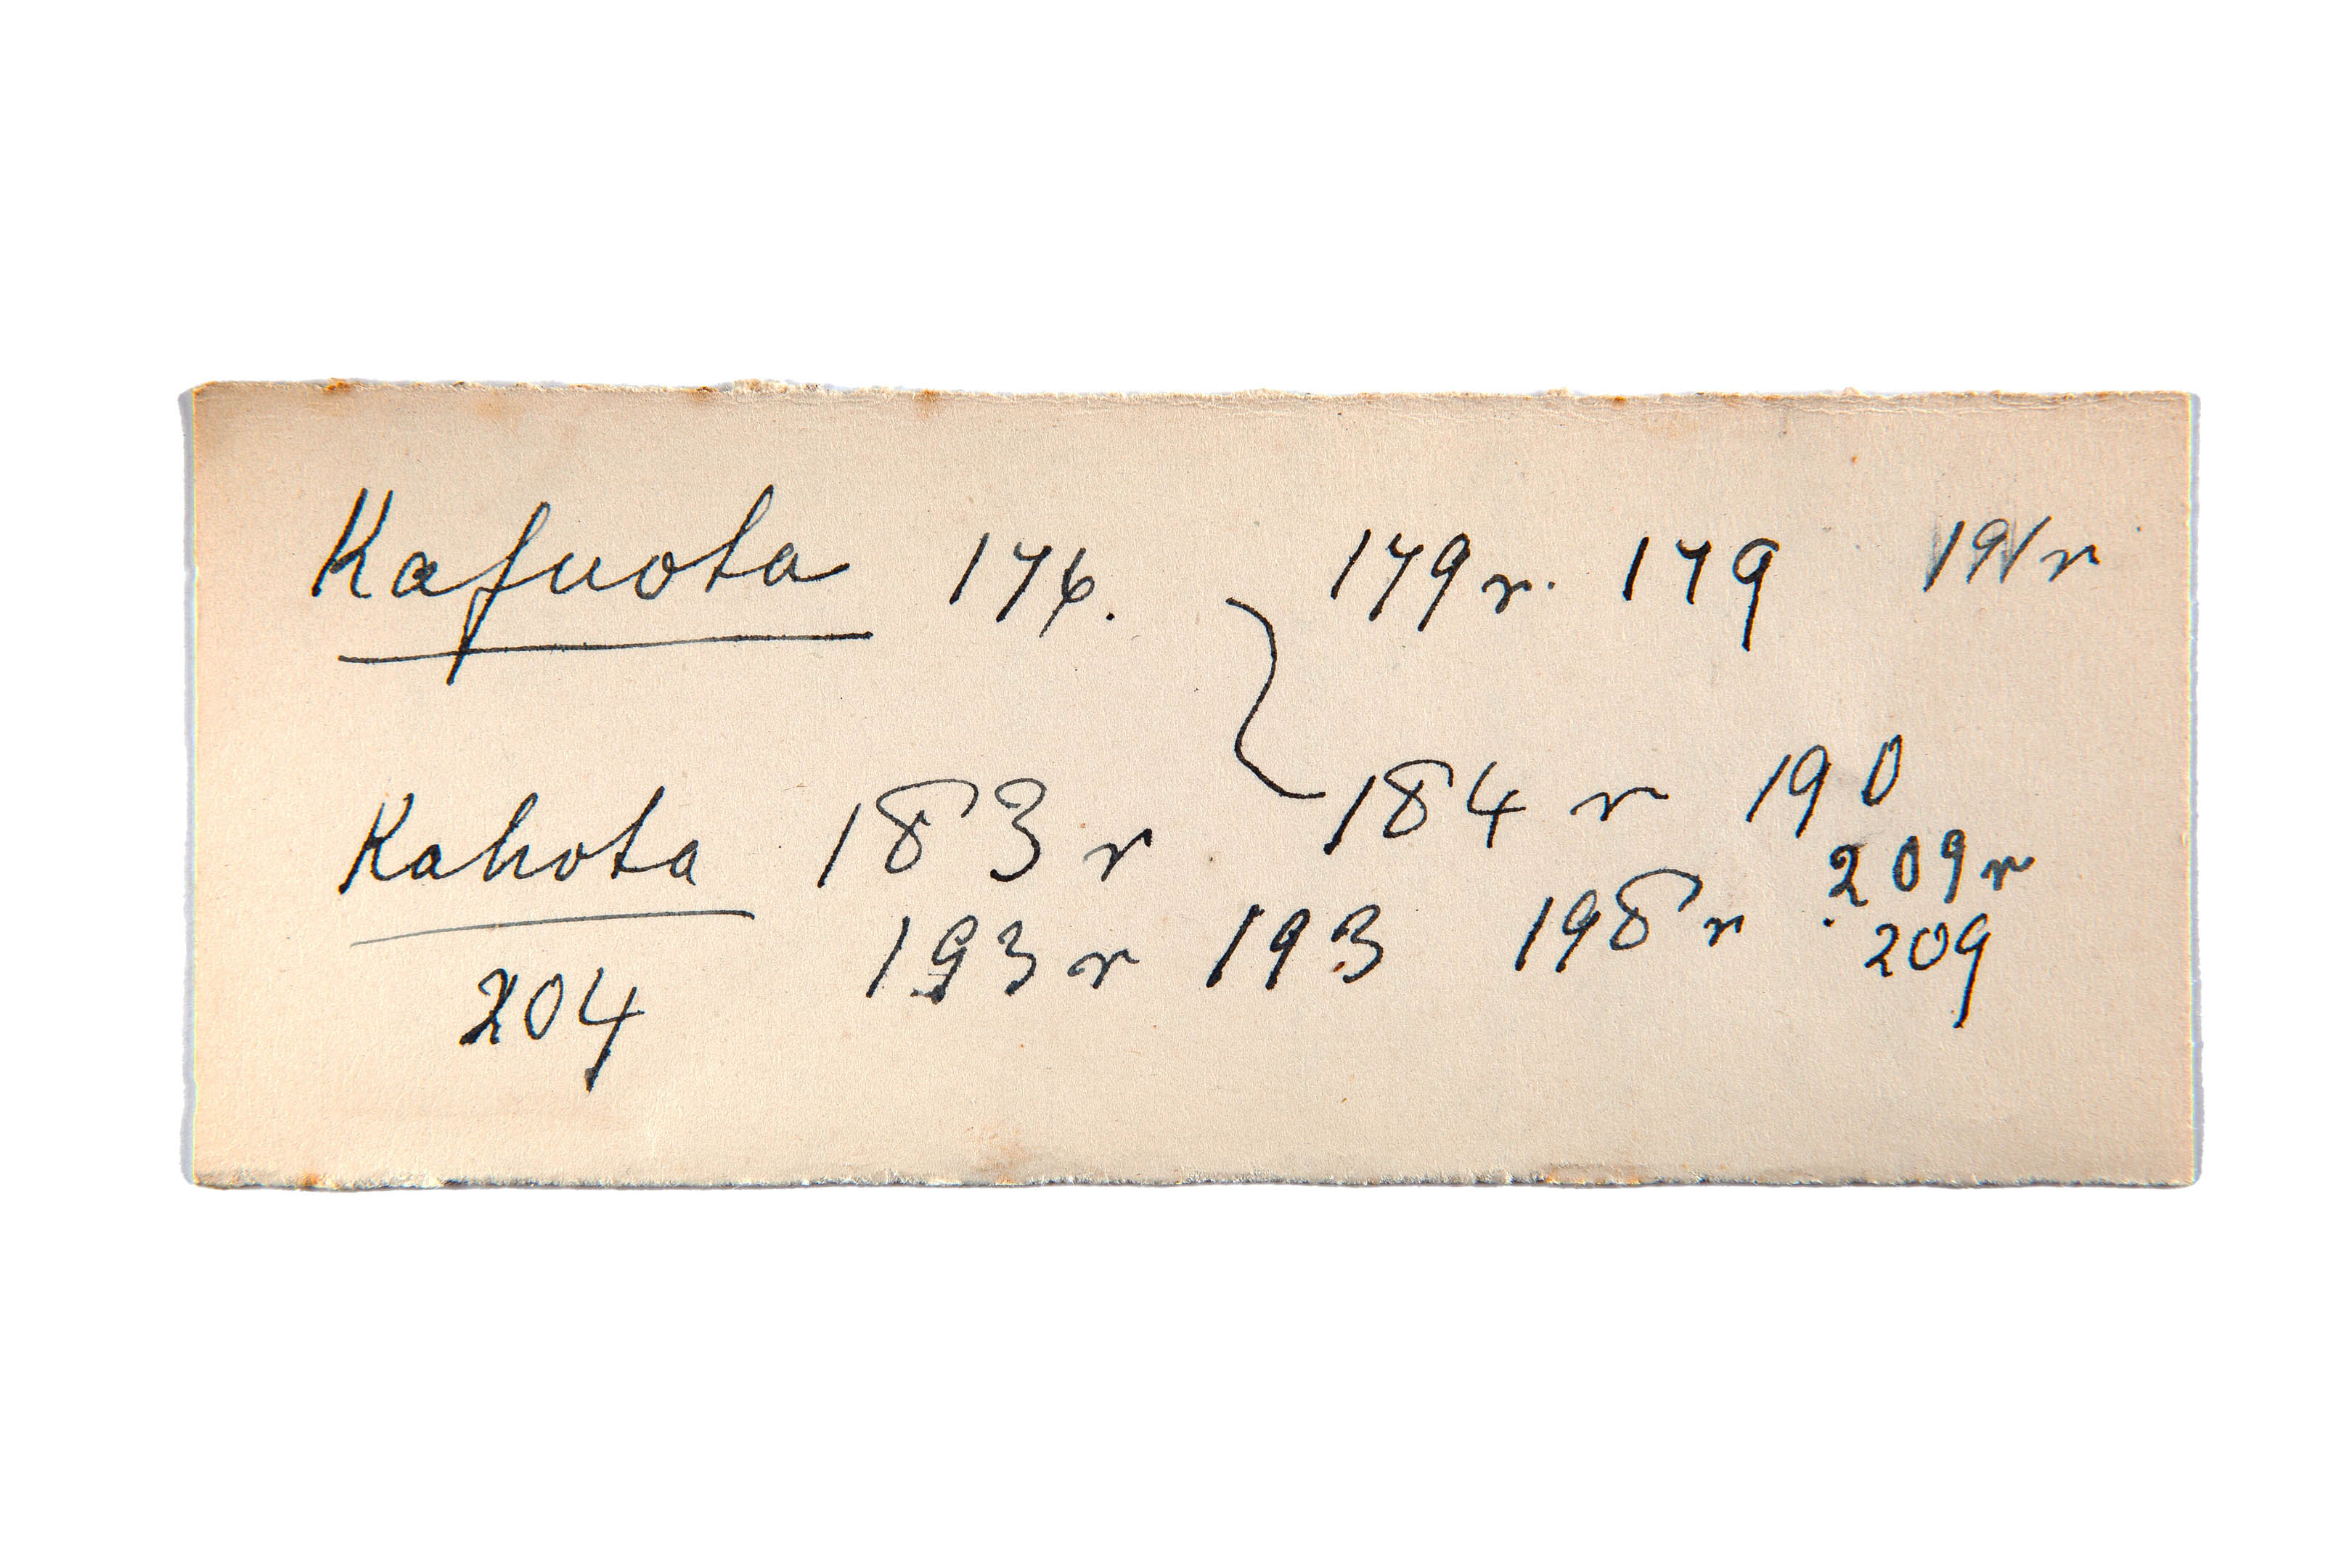 Kafuota 176. 179r. 179 191r
Kahota 183r 184 r 190
209r
193r 193 198r 209
204